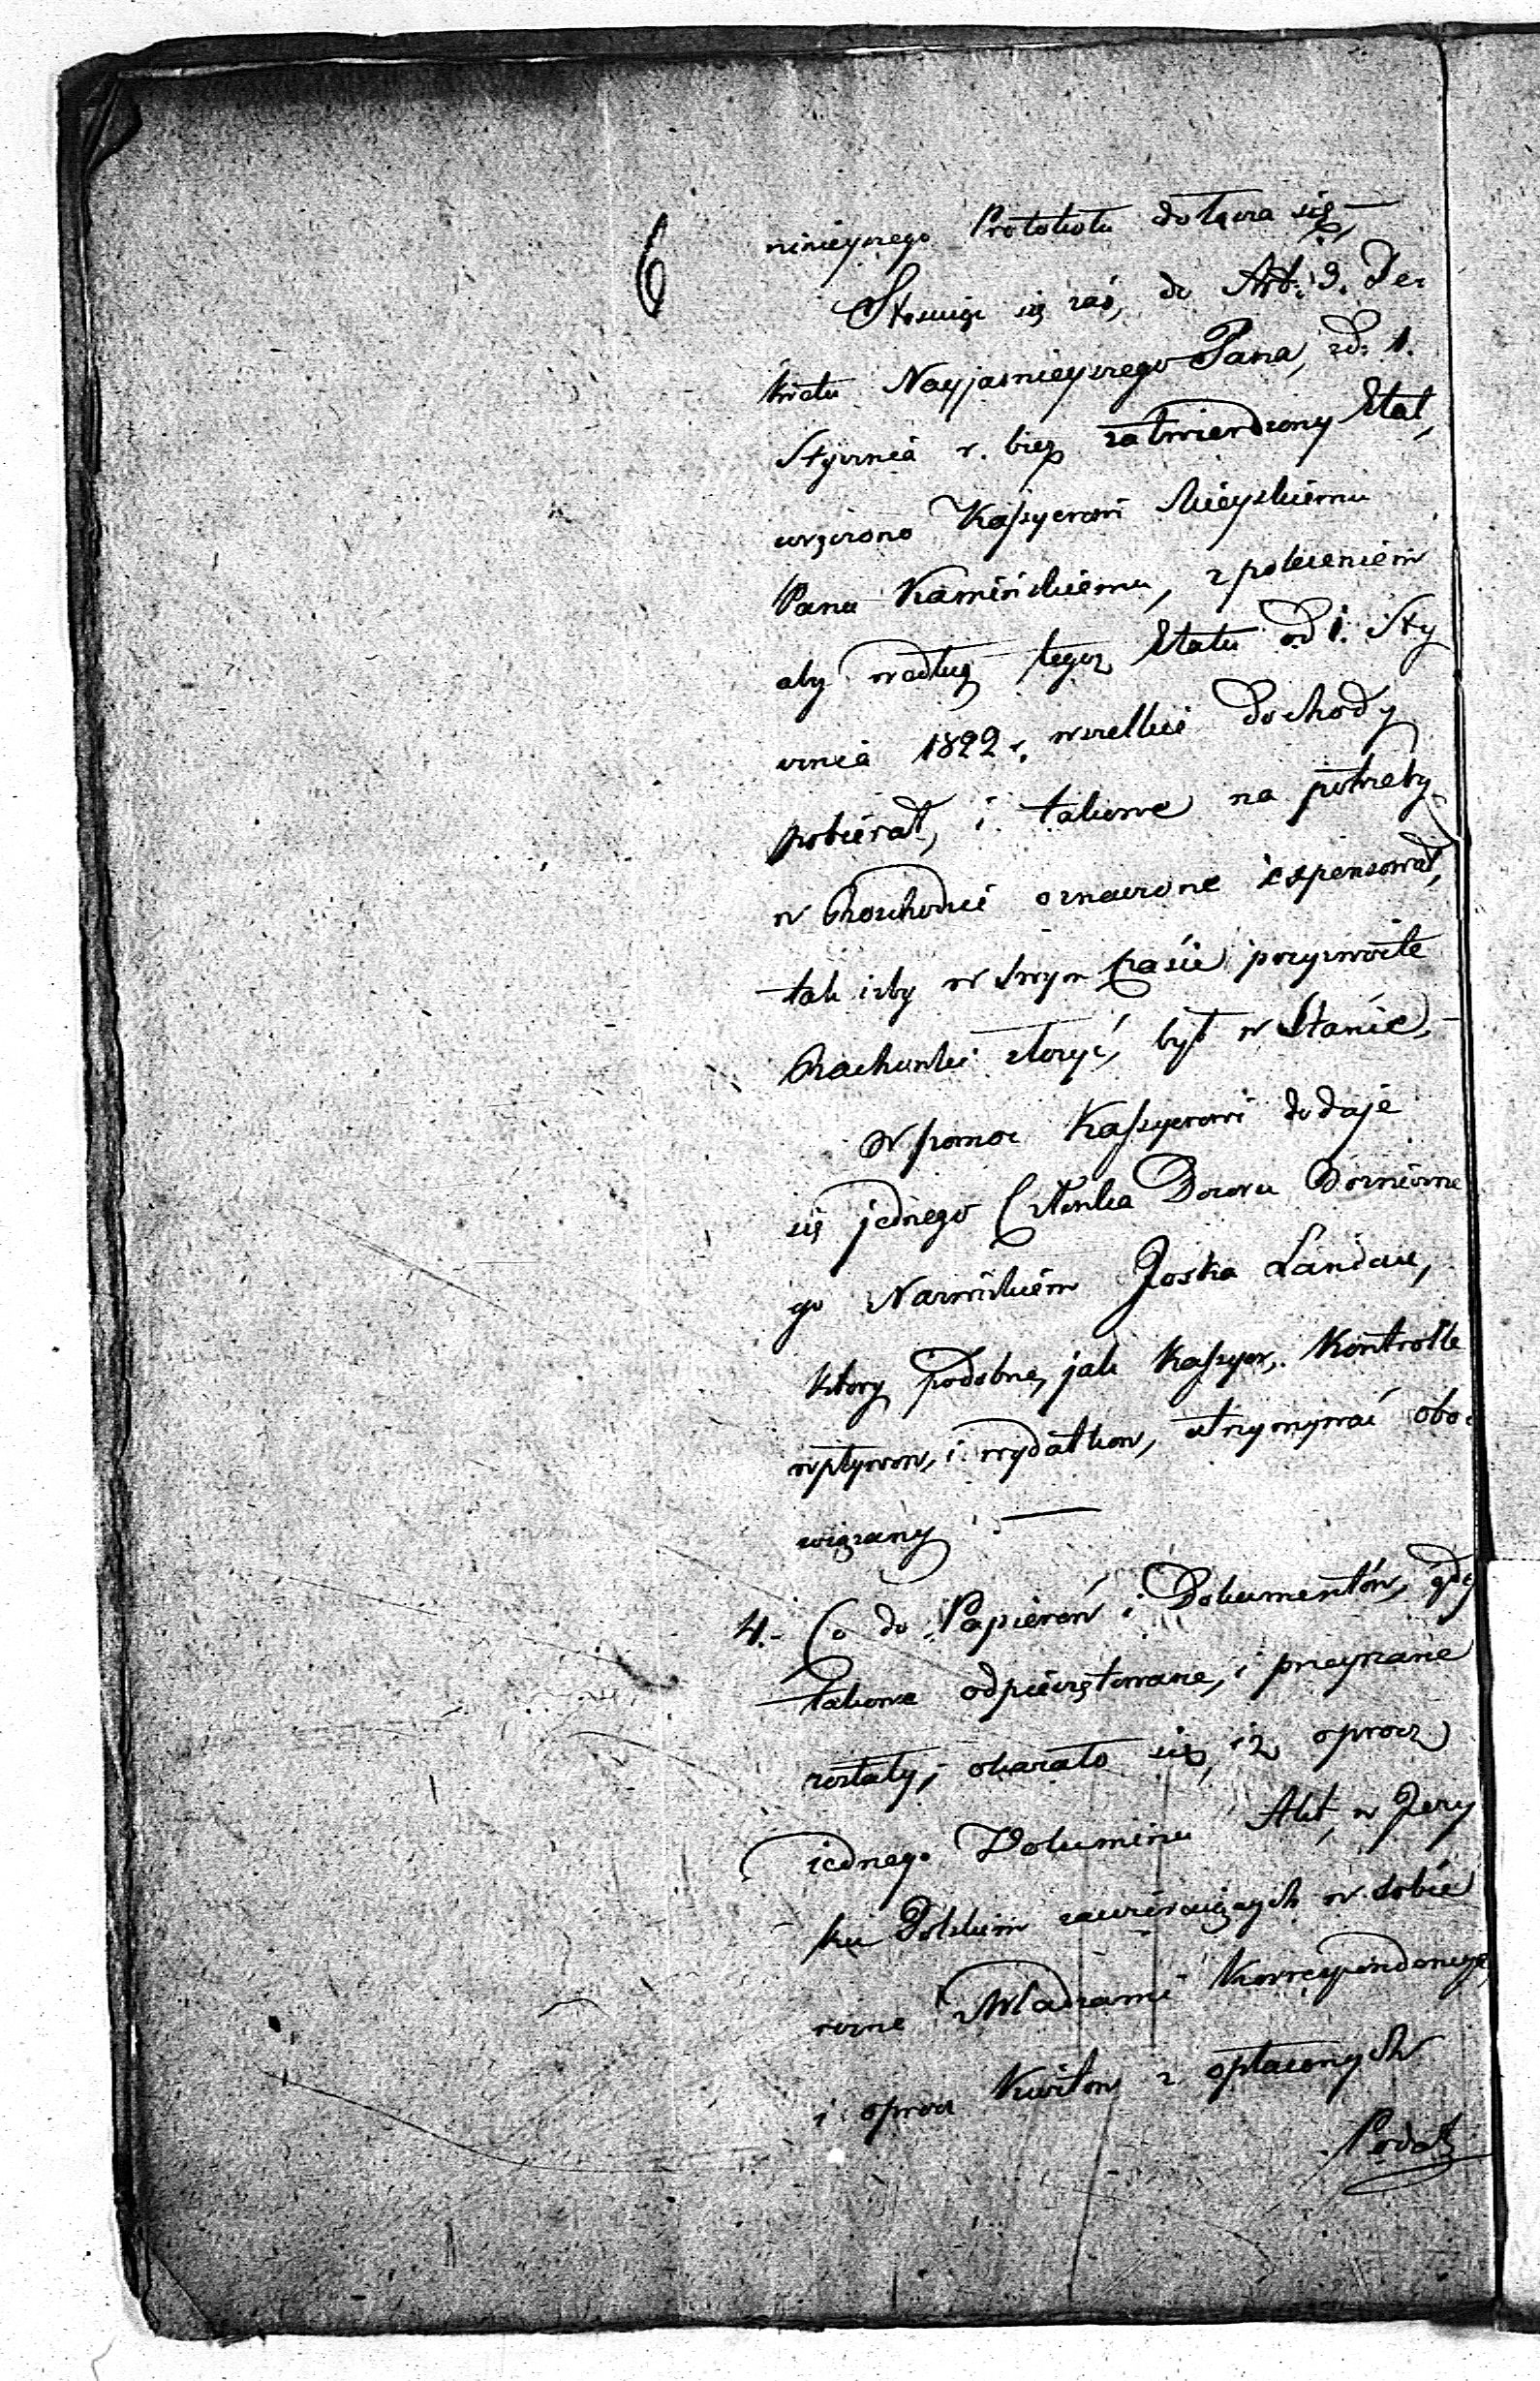 6
ninieyszego Protokołu dołącza się —
Stosuiąc się zaś, do Art: 3. De=
kretu Nayjaśnieyszego Pana, zd: 1.
Stycznia r. bieź zatwierdzony Etat,
wręczono Kaſsyerowi Mieyskiemu
Panu Kamińskiemu, z poleceniem
aby według tegoz Etatu od 1. Sty
cznia 1822 r. wszelkie dochody
pobierał, i takowe na potrzeby
w Rozchodzie oznaczone expensował,
tak izby w swym Czasie przyzwoite
Rachunki złozyć, był w Stanie, —
W pomoc Kaſsyerowi dodaje
się jednego Członka Dozoru Bózniczne
go Nazwiskiem Joska Landau,
ktory podobnie, jak Kaſsyer, Kontrolle
wpływow, i wydatkow, utrzymywać obo=
wiązany. —
4.- Co do Papierów i Dokumentów, gdy
takowe odpieczętowane, i przeyrzane
zostały, okazało się, iż oprocz
iednego Voluminu Akt, w Języ
ku Polskim zawieraiących w sobie
rózne z Władzami Korrespondencye,
i oprocz Kwitow z opłaconych
Podat